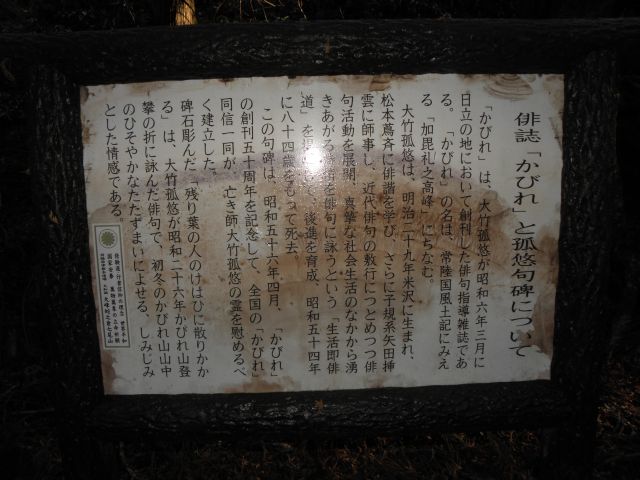 俳誌「かびれ」と孤悠句碑について
「かびれ」は、大竹孤悠が昭和六年三月に
日立の地において創刊した俳句指導雑誌であ
る。「かびれ」の名は、常陸国風土記にみえ
る「加毘礼之高峰」にちなむ。
大竹孤悠は、明治二十九年米沢に生まれ、
松本蔦斉に俳諧を学び、さらに子規系矢田挿
雲に師事し、近代俳句の敷行につとめつつ俳
句活動を展開、真摯な社会生活のなかから湧
きあがる詩情を俳句に詠うという「生活即俳
道」を て、後進を育成、昭和五十四年
に八十四歳をもって死去。
この句碑は、昭和五十六年四月、「かびれ」
の創刊五十周年を記念して、全国の「かびれ」
同信一同が、亡き師大竹孤悠の霊を慰めるべ
く建立した。
碑石彫んだ「残り葉の人のけはひに散りかか
る」は、大竹孤悠が昭和二十六年かびれ山登
攀の折に詠んだ俳句で、初冬のかびれ山山中
のひそやかなたたずまいによせる、しみじみ
とした情感である。